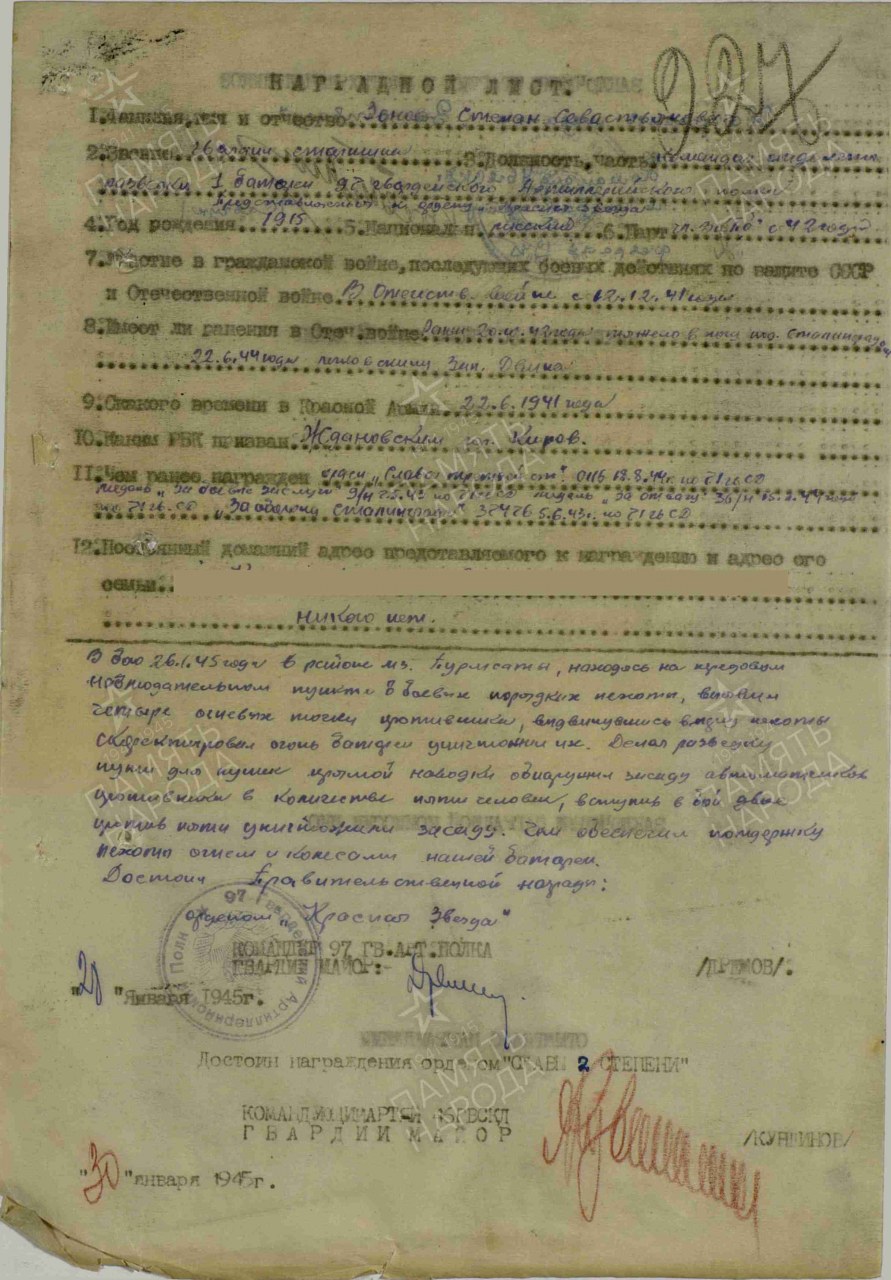 927
НАГРАДНОЙ ЛИСТ.
1. Фамилия, имя и отчество. Зонов Степан Савастьянович
2. Звание. Гвардии старшина 3. Должность, часть Командир отделения
разведки 1 батареи 97 гвардейского Артиллерийского полка
Представляется к ордену "Красная Звезда"
4. Год рождения. 1915 5. Национальн. русский 6. Парт. чл. ВКП(б) с 42 года
7. Участие в гражданской войне, последующих боевых действиях по защите СССР
и Отечественной войне. В Отечеств. войне с 12.12.41 года
8. Имеет ли ранения в Отеч. войне Ранен 42 года тяжело в ногу
22.6.44 года легко Зап. Двина
9. С какого времени в Красной Армии. 22.6.1941 года
10. Каким РВК призван. Ждановским г. Киров.
11. Чем ранее награжден орден "Слава 18.8.44г. по 71 гв СД
медаль "За боевые заслуги" по 71 гв СД медаль "За отвагу"
по 71 гв. СД "За оборону Сталинграда" 5.6.43г. по 71 гв СД
12. Постоянный домашний адрес представляемого к награждению и адрес его
семьи..
никого нет.
В бою 26.1.45 года в районе мз. Бурмсаты, находясь на передовом
наблюдательном пункте в боевых порядках пехоты, выявил
четыре огневых точки противника, выдвинувшись вперед пехоты
скорректировал огонь батареи уничтожил их. Делал разведку
пункт для пушек прямой наводки обнаружил засаду автоматчиков
противника в количестве пяти человек, вступив в бой двое
против пяти уничтожили засаду. Чем обеспечил поддержку
пехоты огнем и колесами нашей батареи.
Достоин Правительственной награды:
орденом "Красная Звезда"
КОМАНДИР 97 ГВ. АРТ. ПОЛКА
ГВАРДИИ МАЙОР:- /ДРЕМОВ/.
97 Гвардейский Артиллерийский Полк
"20" Января 1945г.
Достоин награждения орденом "СЛАВЫ 2 СТЕПЕНИ"
ГВАРДИИ МАЙОР
"30" января 1945г.
ПАМЯТЬ НАРОДА